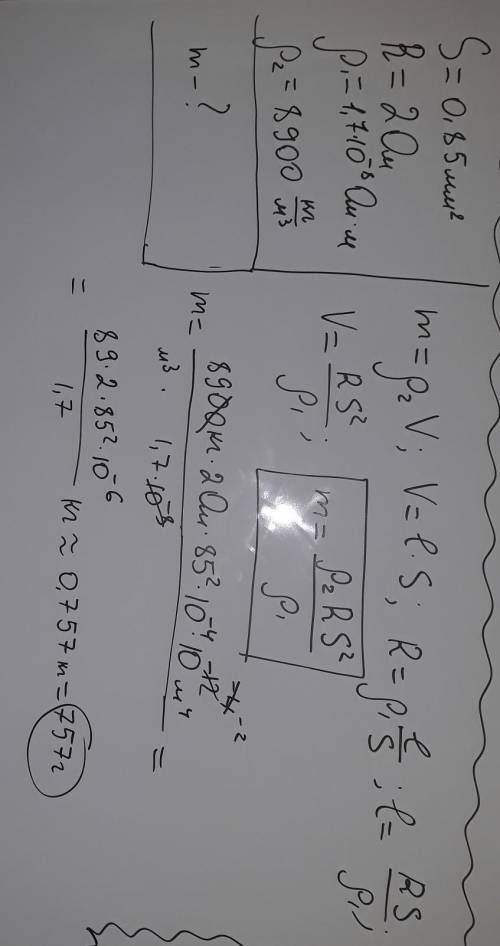 S = 0,85 мм²
R = 2 Ом
ρ₁ = 1,7·10⁻⁸ Ом·м
ρ₂ = 8900 кг/м³
m - ?
m = ρ₂V; V = ℓ·S; R = ρ₁ ℓ/S; ℓ = RS/ρ₁;
V = RS²/ρ₁; m = ρ₂RS²/ρ₁
m = 8900 кг · 2 Ом · 85² · 10⁻⁴ · 10⁻¹² м⁴ / м³ · 1,7·10⁻⁸ =
= 89·2·85²·10⁻⁶ / 1,7 кг ≈ 0,757 кг = 757 г